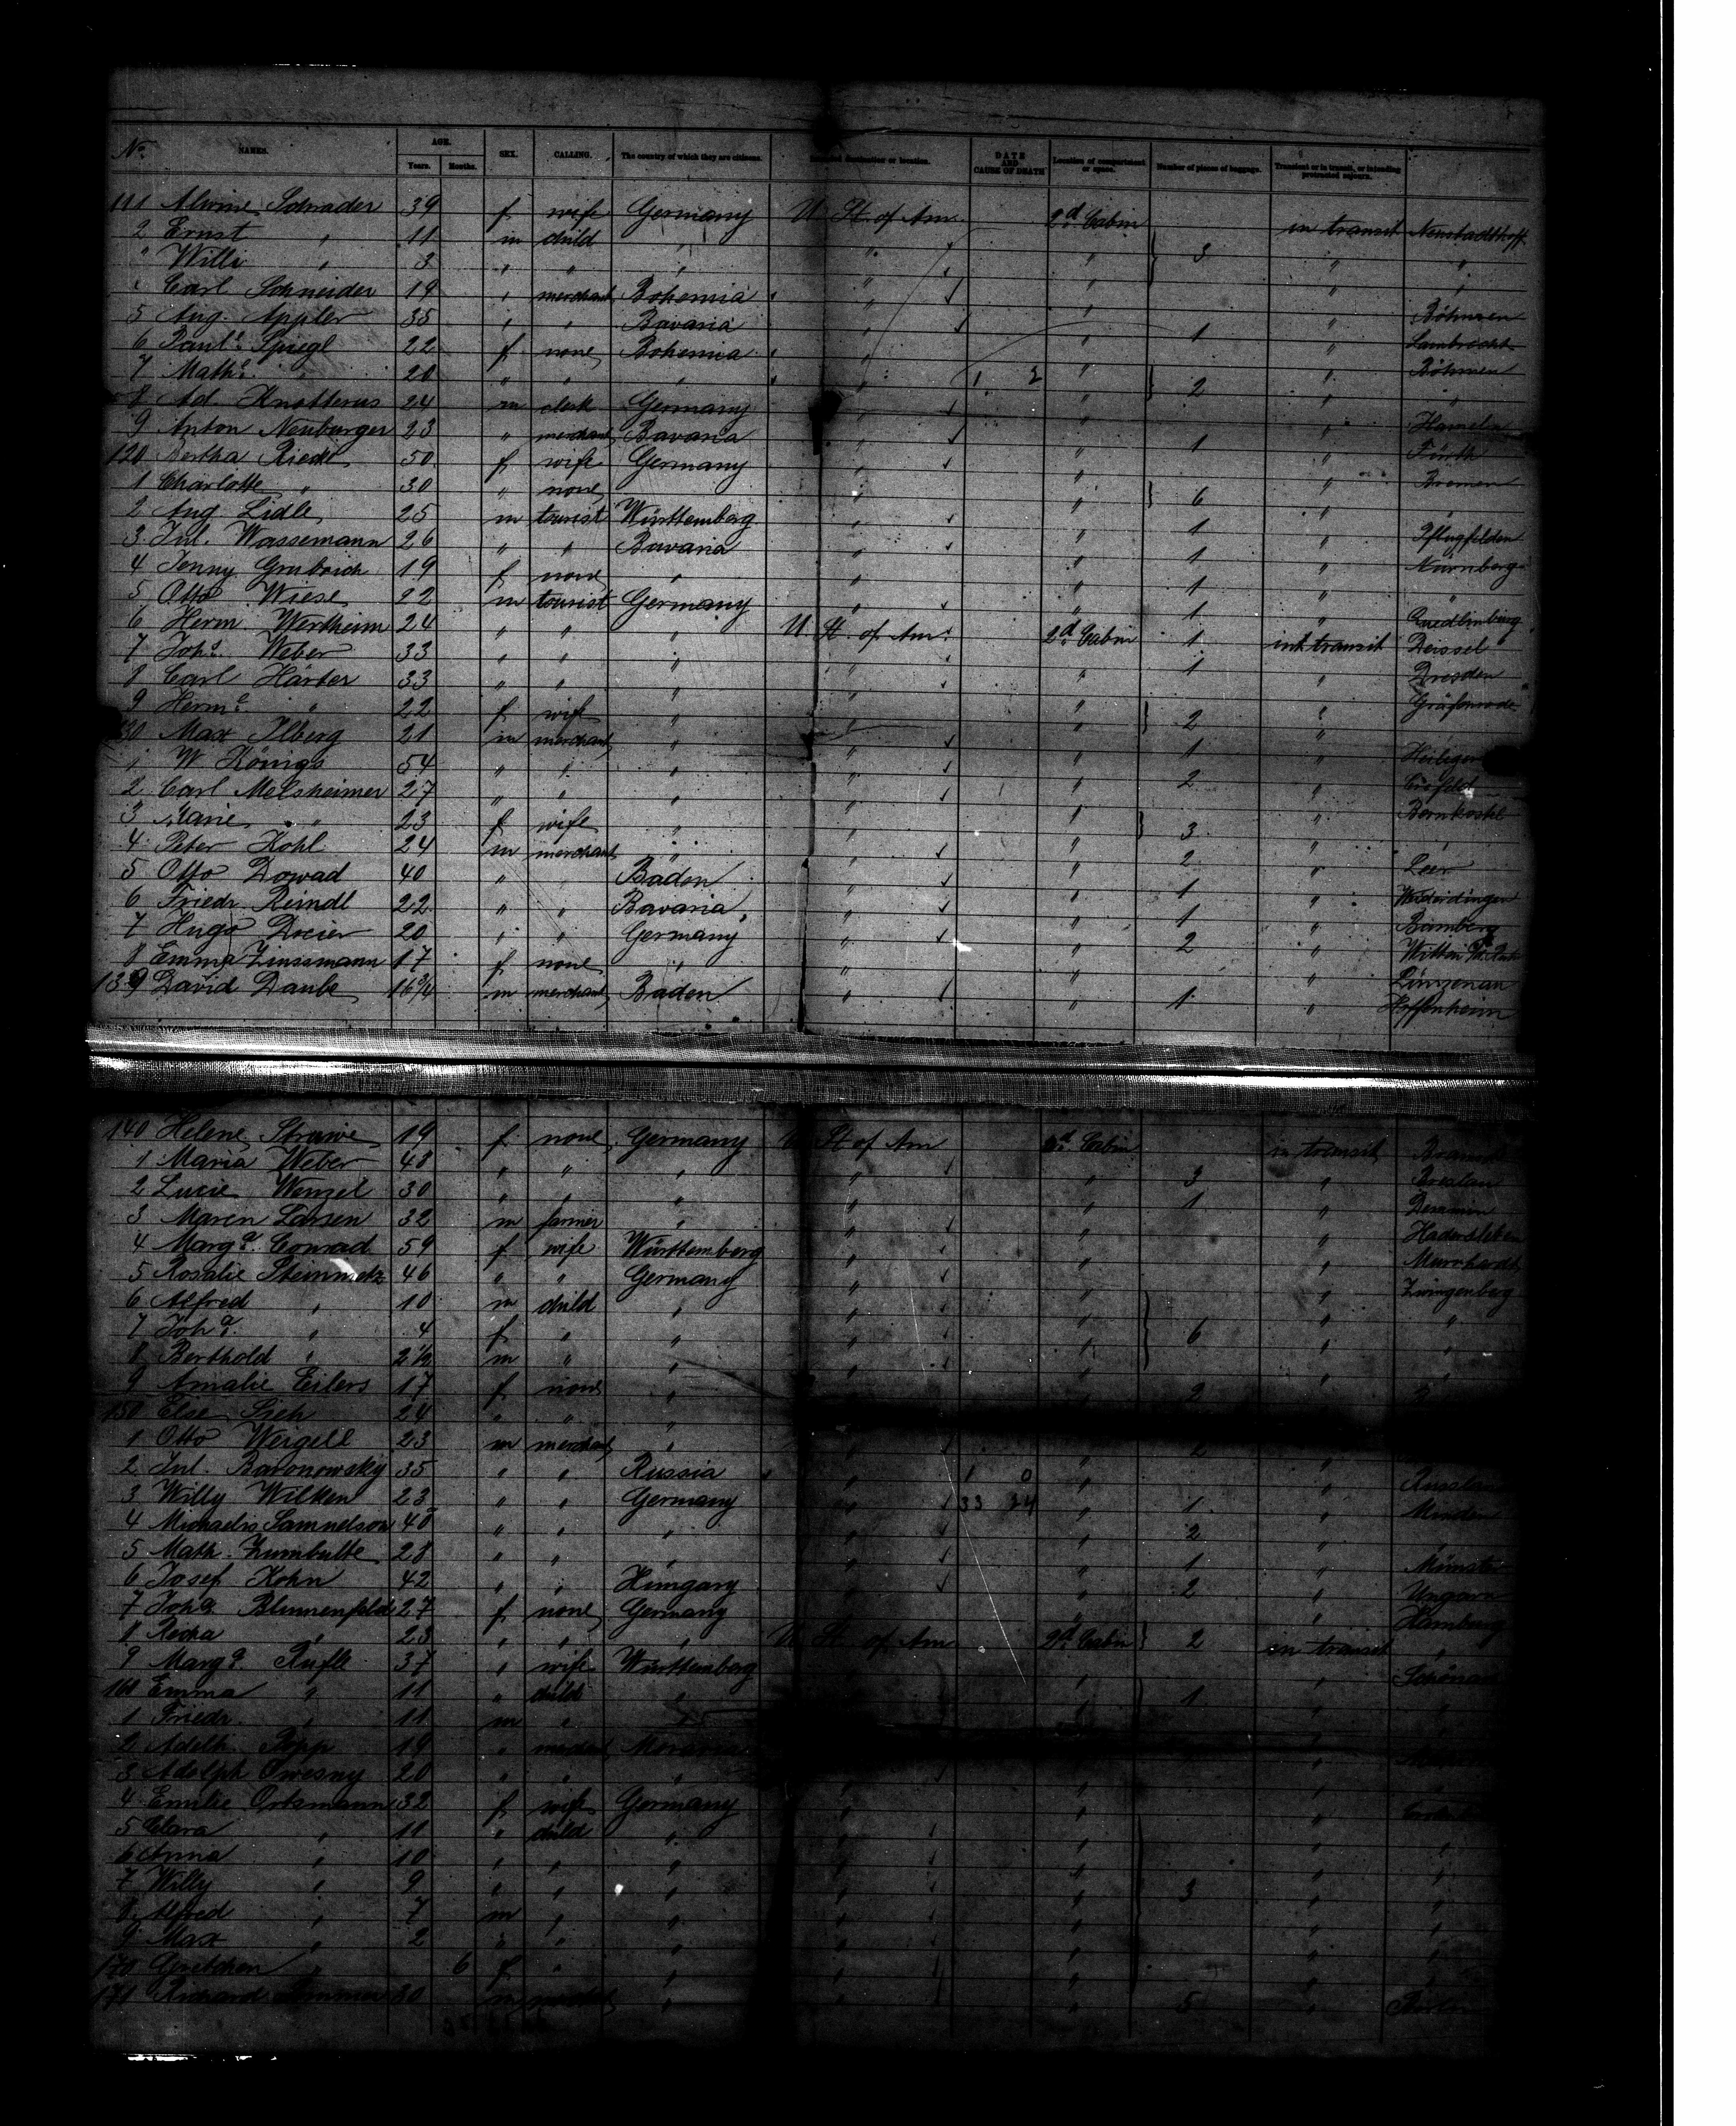 No. NAMES. AGE. Years. Months. SEX. CALLING. The country of which they are citizens. Intended destination or location. DATE AND CAUSE OF DEATH Location of compartment or space. Number of pieces of baggage. Transient or in transit, or intending protracted sojourn.
111 Alwine Schrader 39 f wife Germany U. St. of Am. 2d Cabin in transit Neustadthoff
2 Ernst " 11 m child " " " 3 " "
" Willi " 3 " " " " " " "
Carl Schneider 19 " merchant Bohemia " " " Böhmen
5 Aug. Appler 35 " " Bavaria " " 1 " Lambrecht
6 Paule Spiegl 22 f none Bohemia " " " Böhmen
7 Mathe " 20 " " " " 1 2 " 2 " "
8 Ad. Knotterus 24 m clerk Germany " " " Hameln
9 Anton Neuburger 23 " merchant Bavaria " " 1 " Fürth
120 Bertha Riedel 50 f wife Germany " " " Bremen
1 Charlotte " 30 " none " " 6 " "
2 Aug Lidle 25 m tourist Württemberg " " 1 " Pflugfelden
3 Jul. Wassemann 26 " " Bavaria " " 1 " Nürnberg
4 Jenny 19 f none " " " 1 " "
5 Otto Wiese 22 m tourist Germany " " 1 " Quedlinburg
6 Herm. Wertheim 24 " " " U. St. of Am. 2d Cabin 1 in transit
7 Johs. Weber 33 " " " " " 1 " Dresden
8 Carl Härter 33 " " " " " " Gräfenroda
9 Herme " 22 f wife " " " 2 " "
130 Max Ilberg 21 m merchant " " " 1 "
1 W Königs 54 " " " " " 2 " Crefeld
2 Carl Melsheimer 27 " " " " " " Bernkastel
3 Marie " 23 f wife " " " 3 " "
4 Peter Kohl 24 m merchant " " " 2 " Leer
5 Otto Dowad 40 " " Baden " " 1 "
6 Friedr Reindl 22 " " Bavaria " " 1 " Bamberg
7 Hugo 20 " " Germany " " 2 " Witten
8 Emma Zinssmann 17 f none " " " "
139 David Daube 16 3/4 m merchant Baden " " 1 " Hoffenheim
140 Helene Struwe 19 f none Germany U. St of Am 2d Cabin in transit
1 Maria Weber 48 " " " " " 3 " Breslau
2 Lucie Wenzel 30 " " " " " 1 " Demmin
3 Maren Larsen 32 m farmer " " " " Hadersleben
4 Marga. Conrad 59 f wife Württemberg " " " Murrhardt
5 Rosalie Steinmetz 46 " " Germany " " " Zwingenberg
6 Alfred " 10 m child " " " " "
7 Joha. " 4 f " " " " 6 " "
8 Berthold " 2 1/2 m " " " " " "
9 Amalie Eilers 17 f none " " " 2 "
150 Else 24 " " "
1 Otto Weigell 23 m merchant " " " 2 "
2 Jul. Baronowsky 35 " " Russia " 1 0 " " Russland
3 Willy Wilken 23 " " Germany " 33 34 " 1 " Minden
4 Michaelis Samuelson 40 " " " " " 2 " "
5 Math. Zumbulte 28 " " " " " 1 " Münster
6 Josef Kohn 42 " " Hungary " " 2 " Ungarn
7 Joha. Blumenfeld 27 f none Germany " " " Hamburg
8 Recha " 23 " " " U. St. of Am 2d Cabin 2 in transit "
9 Marga. Rufle 37 " wife Württemberg " " "
Emma " 11 " child " " " 1 " "
1 Friedr. " 11 m " " " "
2 Popp 19 " merchant Moravia
3 Adolph Owesny 20 " " " " " " "
4 Emilie Ortsmann 32 f wife Germany " " "
5 Clara " 11 " child " " " " "
6 Anna " 10 " " " " " " "
7 Willy " 9 " " " " " 3 " "
8 Alfred " 7 m " " " " " "
9 Max " 2 " " " " " " "
170 Gretchen " 6 f " " " " " "
171 Richard 30 m merchant " " " 5 "